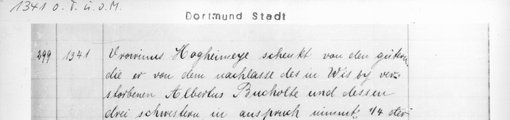 1341 o. T. u. o. M.
Dortmund Stadt
299 1341 Vrowinus Hogheimeye schenkt von den gütern,
die er von dem nachlasse des in Wisby ver-
storbenen Albertus Bucholte und dessen
drei schwestern in anspruch nimmt, 1/4 den